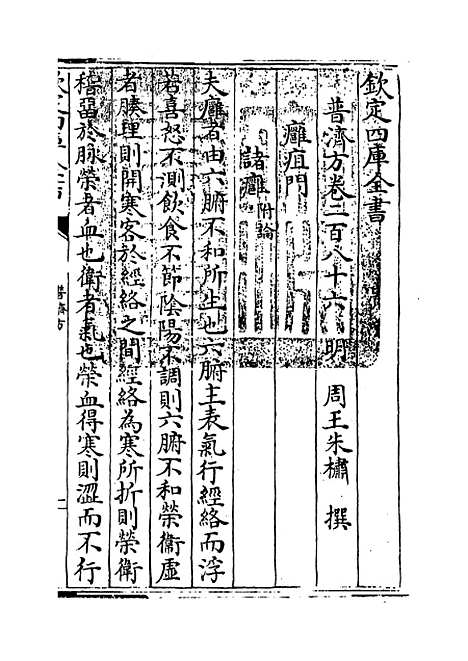 欽定四庫全書
普濟方卷二百八十六 明 周王朱橚 撰
癰疽門
諸癰 附論
夫癰者由六腑不和所生也六腑主表氣行經絡而浮
若喜怒不測飲食不節陰陽不調則六腑不和榮衞虛
者腠理則開寒客於經絡之間經絡為寒所折則榮衞
稽留於脉榮者血也衞者氣也榮血得寒則澀而不行
普濟方